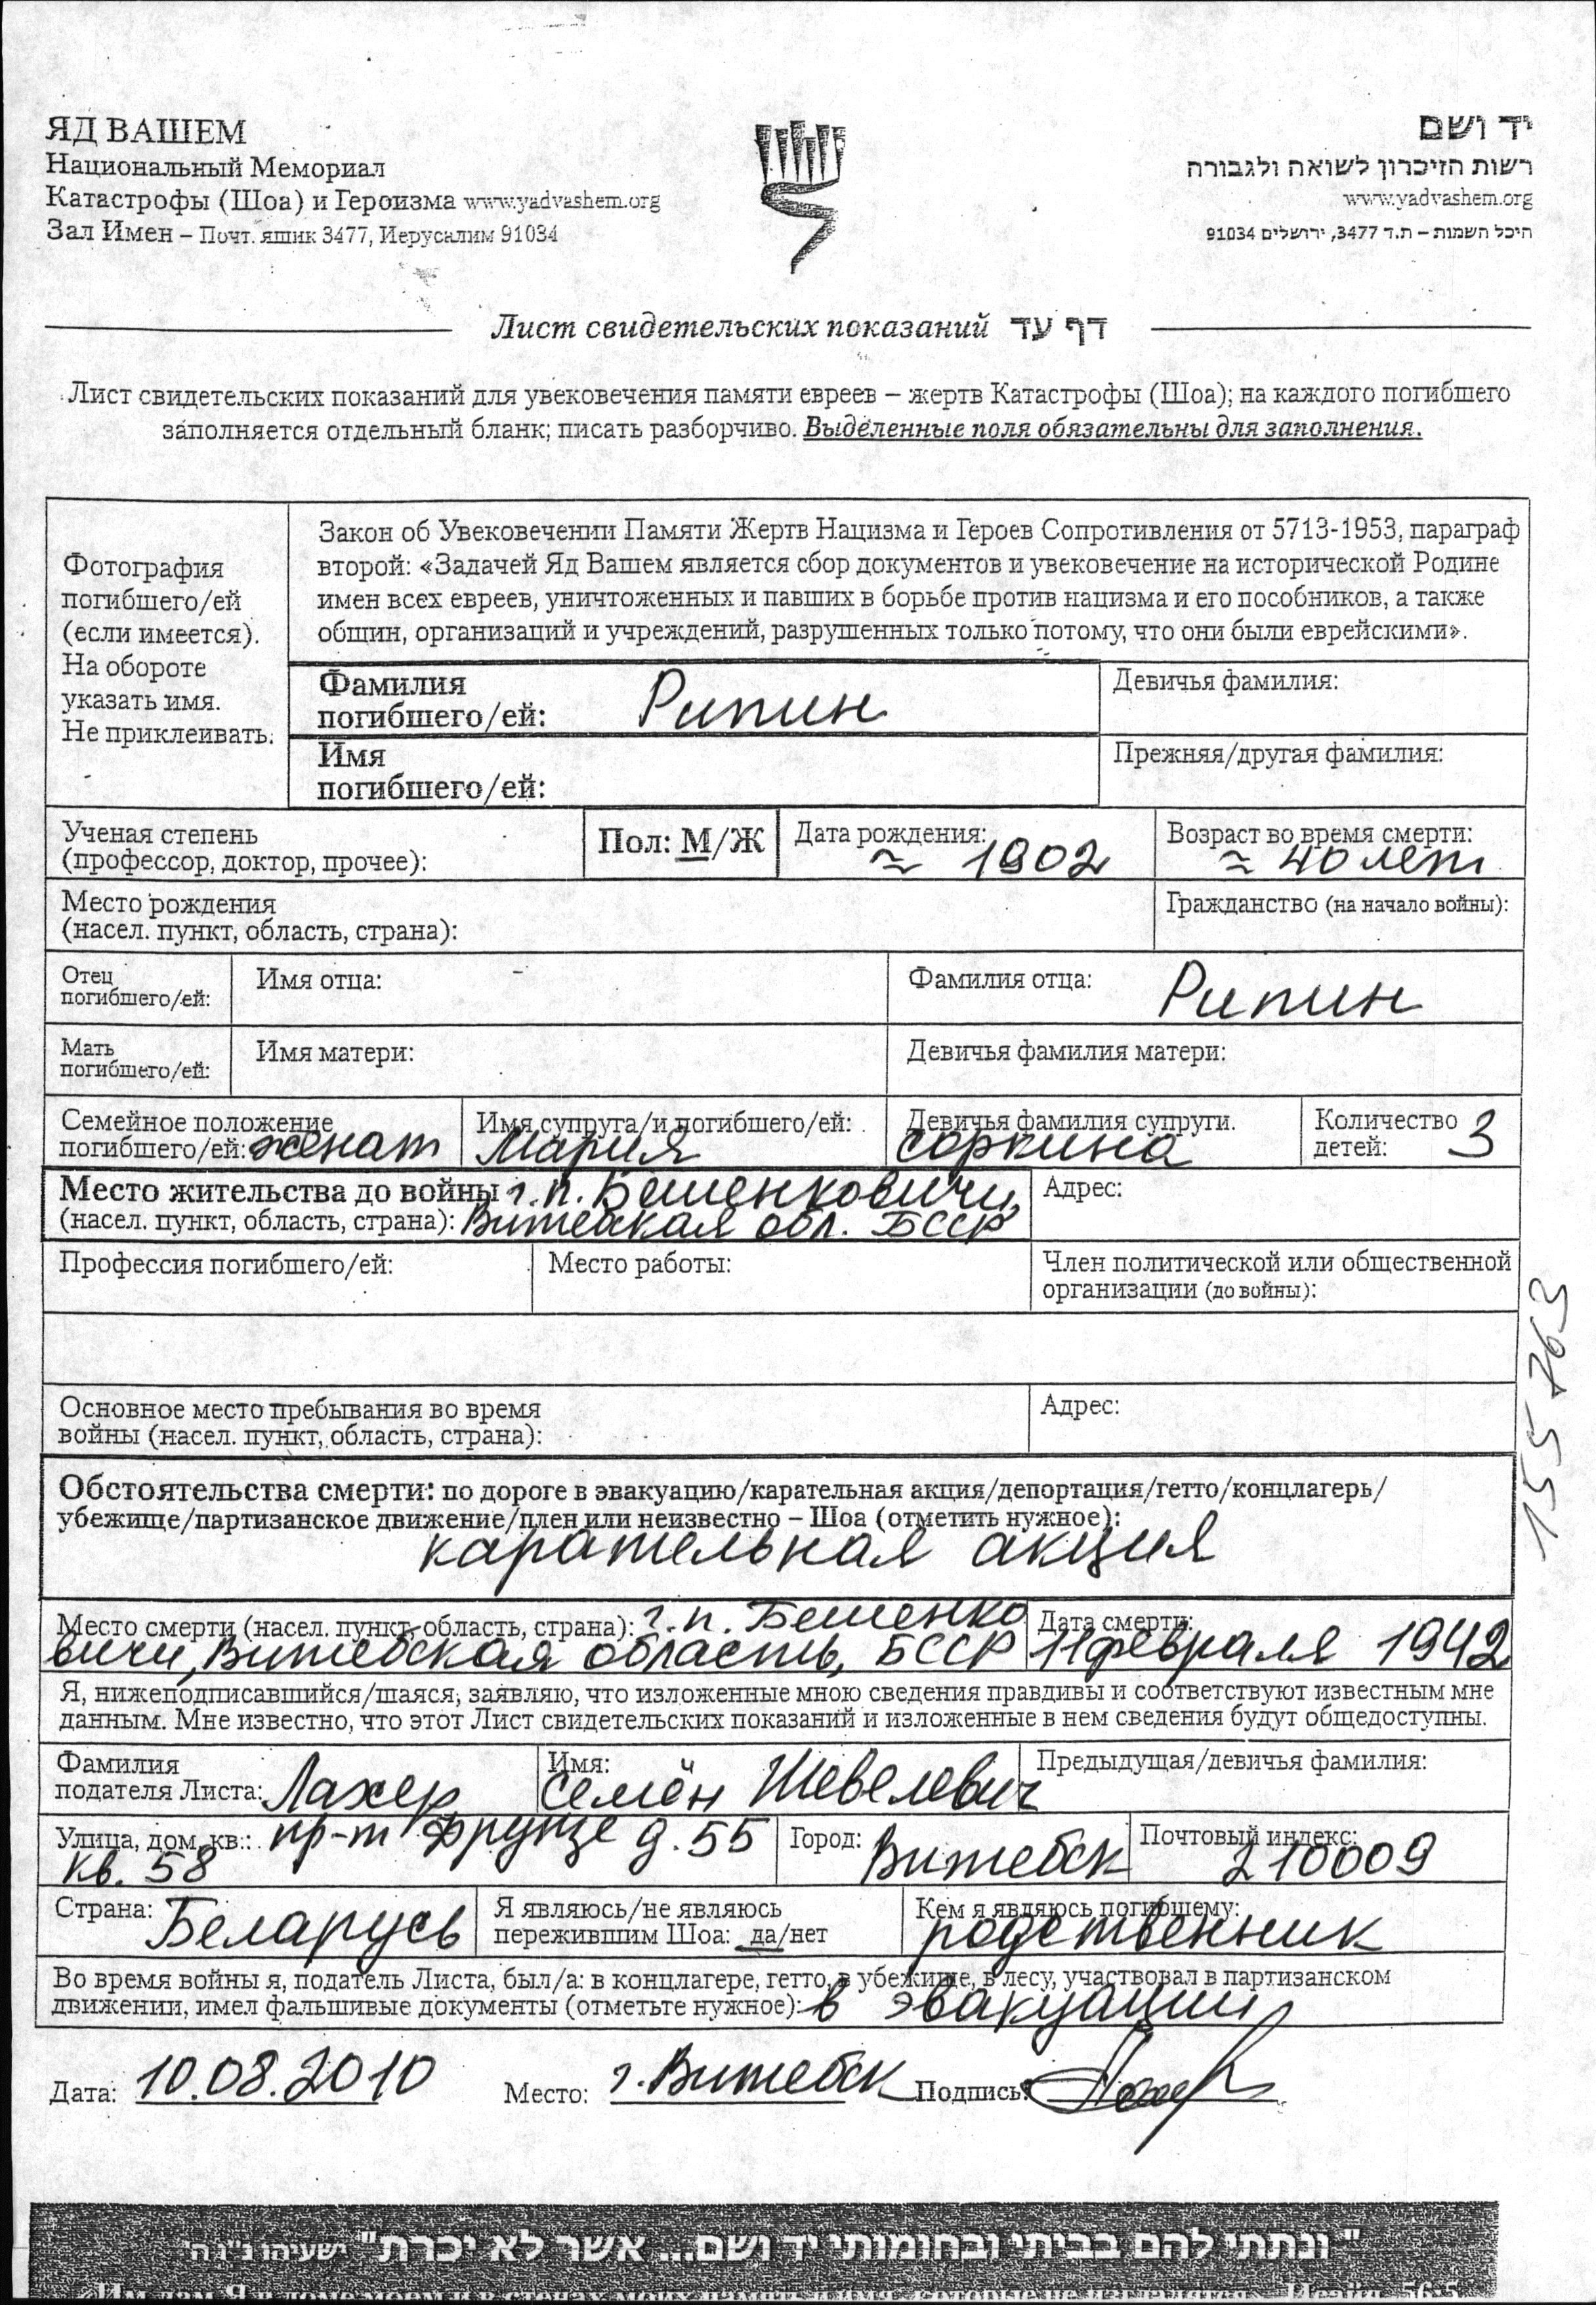 ЯД ВАШЕМ
Национальный Мемориал
Катастрофы (Шоа) и Героизма www.yadvashem.org
Зал Имен – Почт. ящик 3477, Иерусалим 91034
יד ושם
רשות הזיכרון לשואה ולגבורה
www.yadvashem.org
היכל השמות – ת.ד 3477, ירושלים 91034
Лист свидетельских показаний דף עד
Лист свидетельских показаний для увековечения памяти евреев – жертв Катастрофы (Шоа); на каждого погибшего
заполняется отдельный бланк; писать разборчиво. Выделенные поля обязательны для заполнения.
Фотография
погибшего/ей
(если имеется).
На обороте
указать имя.
Не приклеивать.
Закон об Увековечении Памяти Жертв Нацизма и Героев Сопротивления от 5713-1953, параграф
второй: «Задачей Яд Вашем является сбор документов и увековечение на исторической Родине
имен всех евреев, уничтоженных и павших в борьбе против нацизма и его пособников, а также
общин, организаций и учреждений, разрушенных только потому, что они были еврейскими».
Фамилия
погибшего/ей: Рипин
Девичья фамилия:
Имя
погибшего/ей:
Прежняя/другая фамилия:
Ученая степень
(профессор, доктор, прочее):
Пол: М/Ж
Дата рождения:
≈ 1902
Возраст во время смерти:
≈ 40 лет
Место рождения
(насел. пункт, область, страна):
Гражданство (на начало войны):
Отец
погибшего/ей:
Имя отца:
Фамилия отца: Рипин
Мать
погибшего/ей:
Имя матери:
Девичья фамилия матери:
Семейное положение
погибшего/ей: женат
Имя супруга/и погибшего/ей:
Мария
Девичья фамилия супруги.
Соркина
Количество
детей: 3
Место жительства до войны г.п. Бешенковичи,
(насел. пункт, область, страна): Витебская обл. БССР
Адрес:
Профессия погибшего/ей:
Место работы:
Член политической или общественной
организации (до войны):
Основное место пребывания во время
войны (насел. пункт, область, страна):
Адрес:
155763
Обстоятельства смерти: по дороге в эвакуацию/карательная акция/депортация/гетто/концлагерь/
убежище/партизанское движение/плен или неизвестно – Шоа (отметить нужное):
карательная акция
Место смерти (насел. пункт, область, страна): г.п. Бешенко
вичи, Витебская область, БССР
Дата смерти:
11 февраля 1942
Я, нижеподписавшийся/шаяся, заявляю, что изложенные мною сведения правдивы и соответствуют известным мне
данным. Мне известно, что этот Лист свидетельских показаний и изложенные в нем сведения будут общедоступны.
Фамилия
подателя Листа: Лахер
Имя:
Семён Шевелевич
Предыдущая/девичья фамилия:
Улица, дом, кв.: пр-т Фрунзе д. 55
кв. 58
Город: Витебск
Почтовый индекс:
210009
Страна: Беларусь
Я являюсь/не являюсь
пережившим Шоа: да/нет
Кем я являюсь погибшему:
родственник
Во время войны я, податель Листа, был/а: в концлагере, гетто, в убежище, в лесу, участвовал в партизанском
движении, имел фальшивые документы (отметьте нужное): в эвакуации
Дата: 10.08.2010 Место: г. Витебск Подпись:
"ונתתי להם בביתי ובחומותי יד ושם... אשר לא יכרת" ישעיהו נ"ו ה'